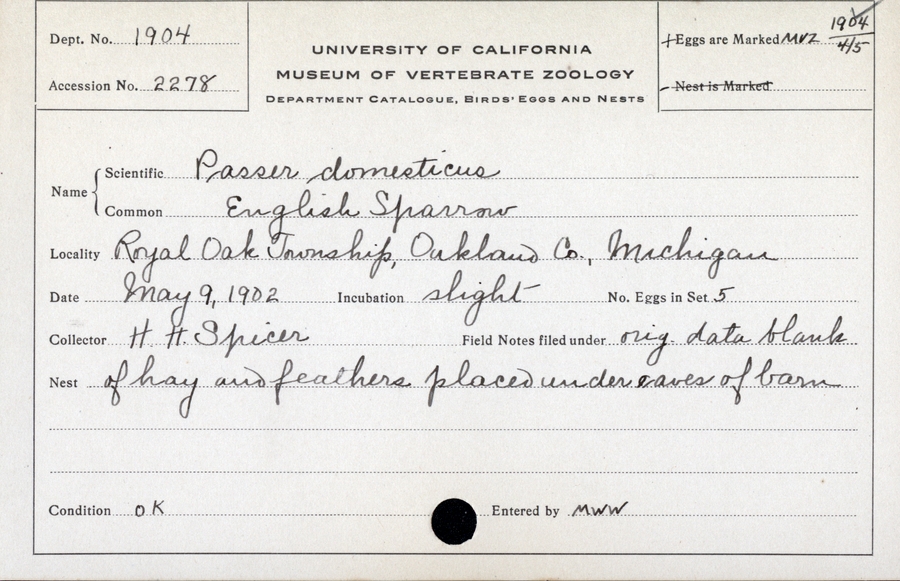 Dept. No. 1904
Accession No. 2278
UNIVERSITY OF CALIFORNIA
MUSEUM OF VERTEBRATE ZOOLOGY
DEPARTMENT CATALOGUE, BIRDS' EGGS AND NESTS
Eggs are Marked MVZ 1904
4/5
Nest is Marked
Name
Scientific Passer domesticus
Common English Sparrow
Locality Royal Oak Township, Oakland Co., Michigan
Date May 9, 1902 Incubation slight No. Eggs in Set 5
Collector H. H. Spicer Field Notes filed under orig. data blank
Nest of hay and feathers placed under eaves of barn
Condition OK Entered by MWW